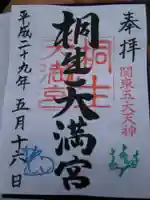 奉拝
関東五大天神
桐生天満宮
桐生
天満宮
平成二十九年五月十六日